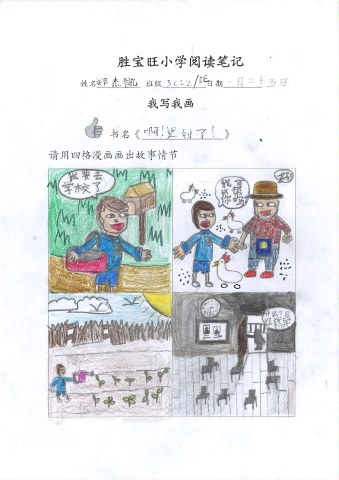 胜宝旺小学阅读笔记
姓名 郑杰凯 班级 3C22/3E 日期 一月二十五日
我写我画
书名《啊！迟到了！》
请用四格漫画画出故事情节
我要去
学校了
可以
我
你
好！
什么？